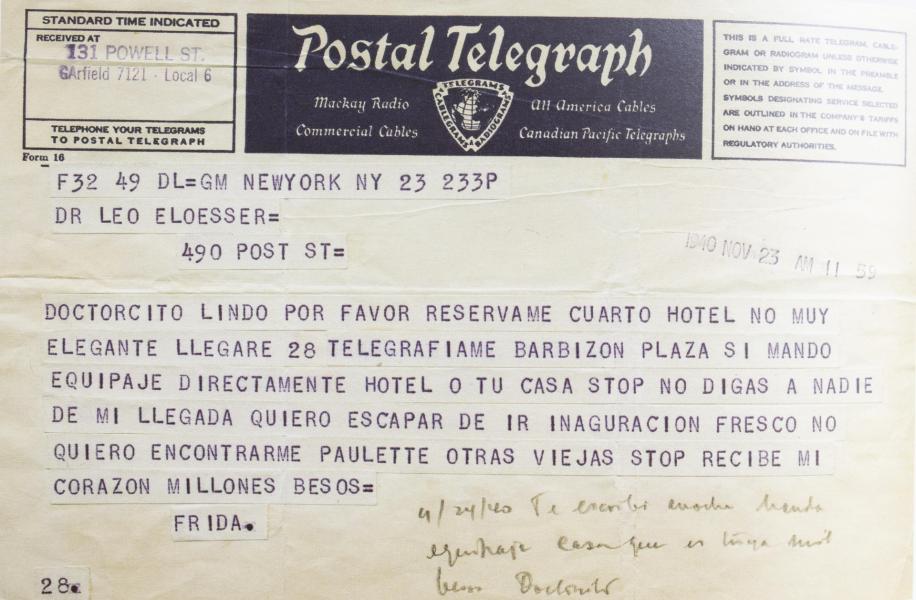 STANDARD TIME INDICATED
RECEIVED AT
131 POWELL ST.
GArfield 7121 - Local 6
TELEPHONE YOUR TELEGRAMS
TO POSTAL TELEGRAPH
Postal Telegraph
Mackay Radio
All America Cables
Commercial Cables
Canadian Pacific Telegraphs
TELEGRAMS
CABLEGRAMS
RADIOGRAMS
THIS IS A FULL RATE TELEGRAM, CABLE-
GRAM OR RADIOGRAM UNLESS OTHERWISE
INDICATED BY SYMBOL IN THE PREAMBLE
OR IN THE ADDRESS OF THE MESSAGE.
SYMBOLS DESIGNATING SERVICE SELECTED
ARE OUTLINED IN THE COMPANY'S TARIFFS
ON HAND AT EACH OFFICE AND ON FILE WITH
REGULATORY AUTHORITIES.
Form 16
F32 49 DL=GM NEWYORK NY 23 233P
DR LEO ELOESSER=
490 POST ST=
1940 NOV 23 AM 11 59
DOCTORCITO LINDO POR FAVOR RESERVAME CUARTO HOTEL NO MUY
ELEGANTE LLEGARE 28 TELEGRAFIAME BARBIZON PLAZA SI MANDO
EQUIPAJE DIRECTAMENTE HOTEL O TU CASA STOP NO DIGAS A NADIE
DE MI LLEGADA QUIERO ESCAPAR DE IR INAGURACION FRESCO NO
QUIERO ENCONTRARME PAULETTE OTRAS VIEJAS STOP RECIBE MI
CORAZON MILLONES BESOS=
FRIDA.
11/24/40 Te escribi anoche manda
equipaje casa que es tuya mil
besos Doctorcito
28.